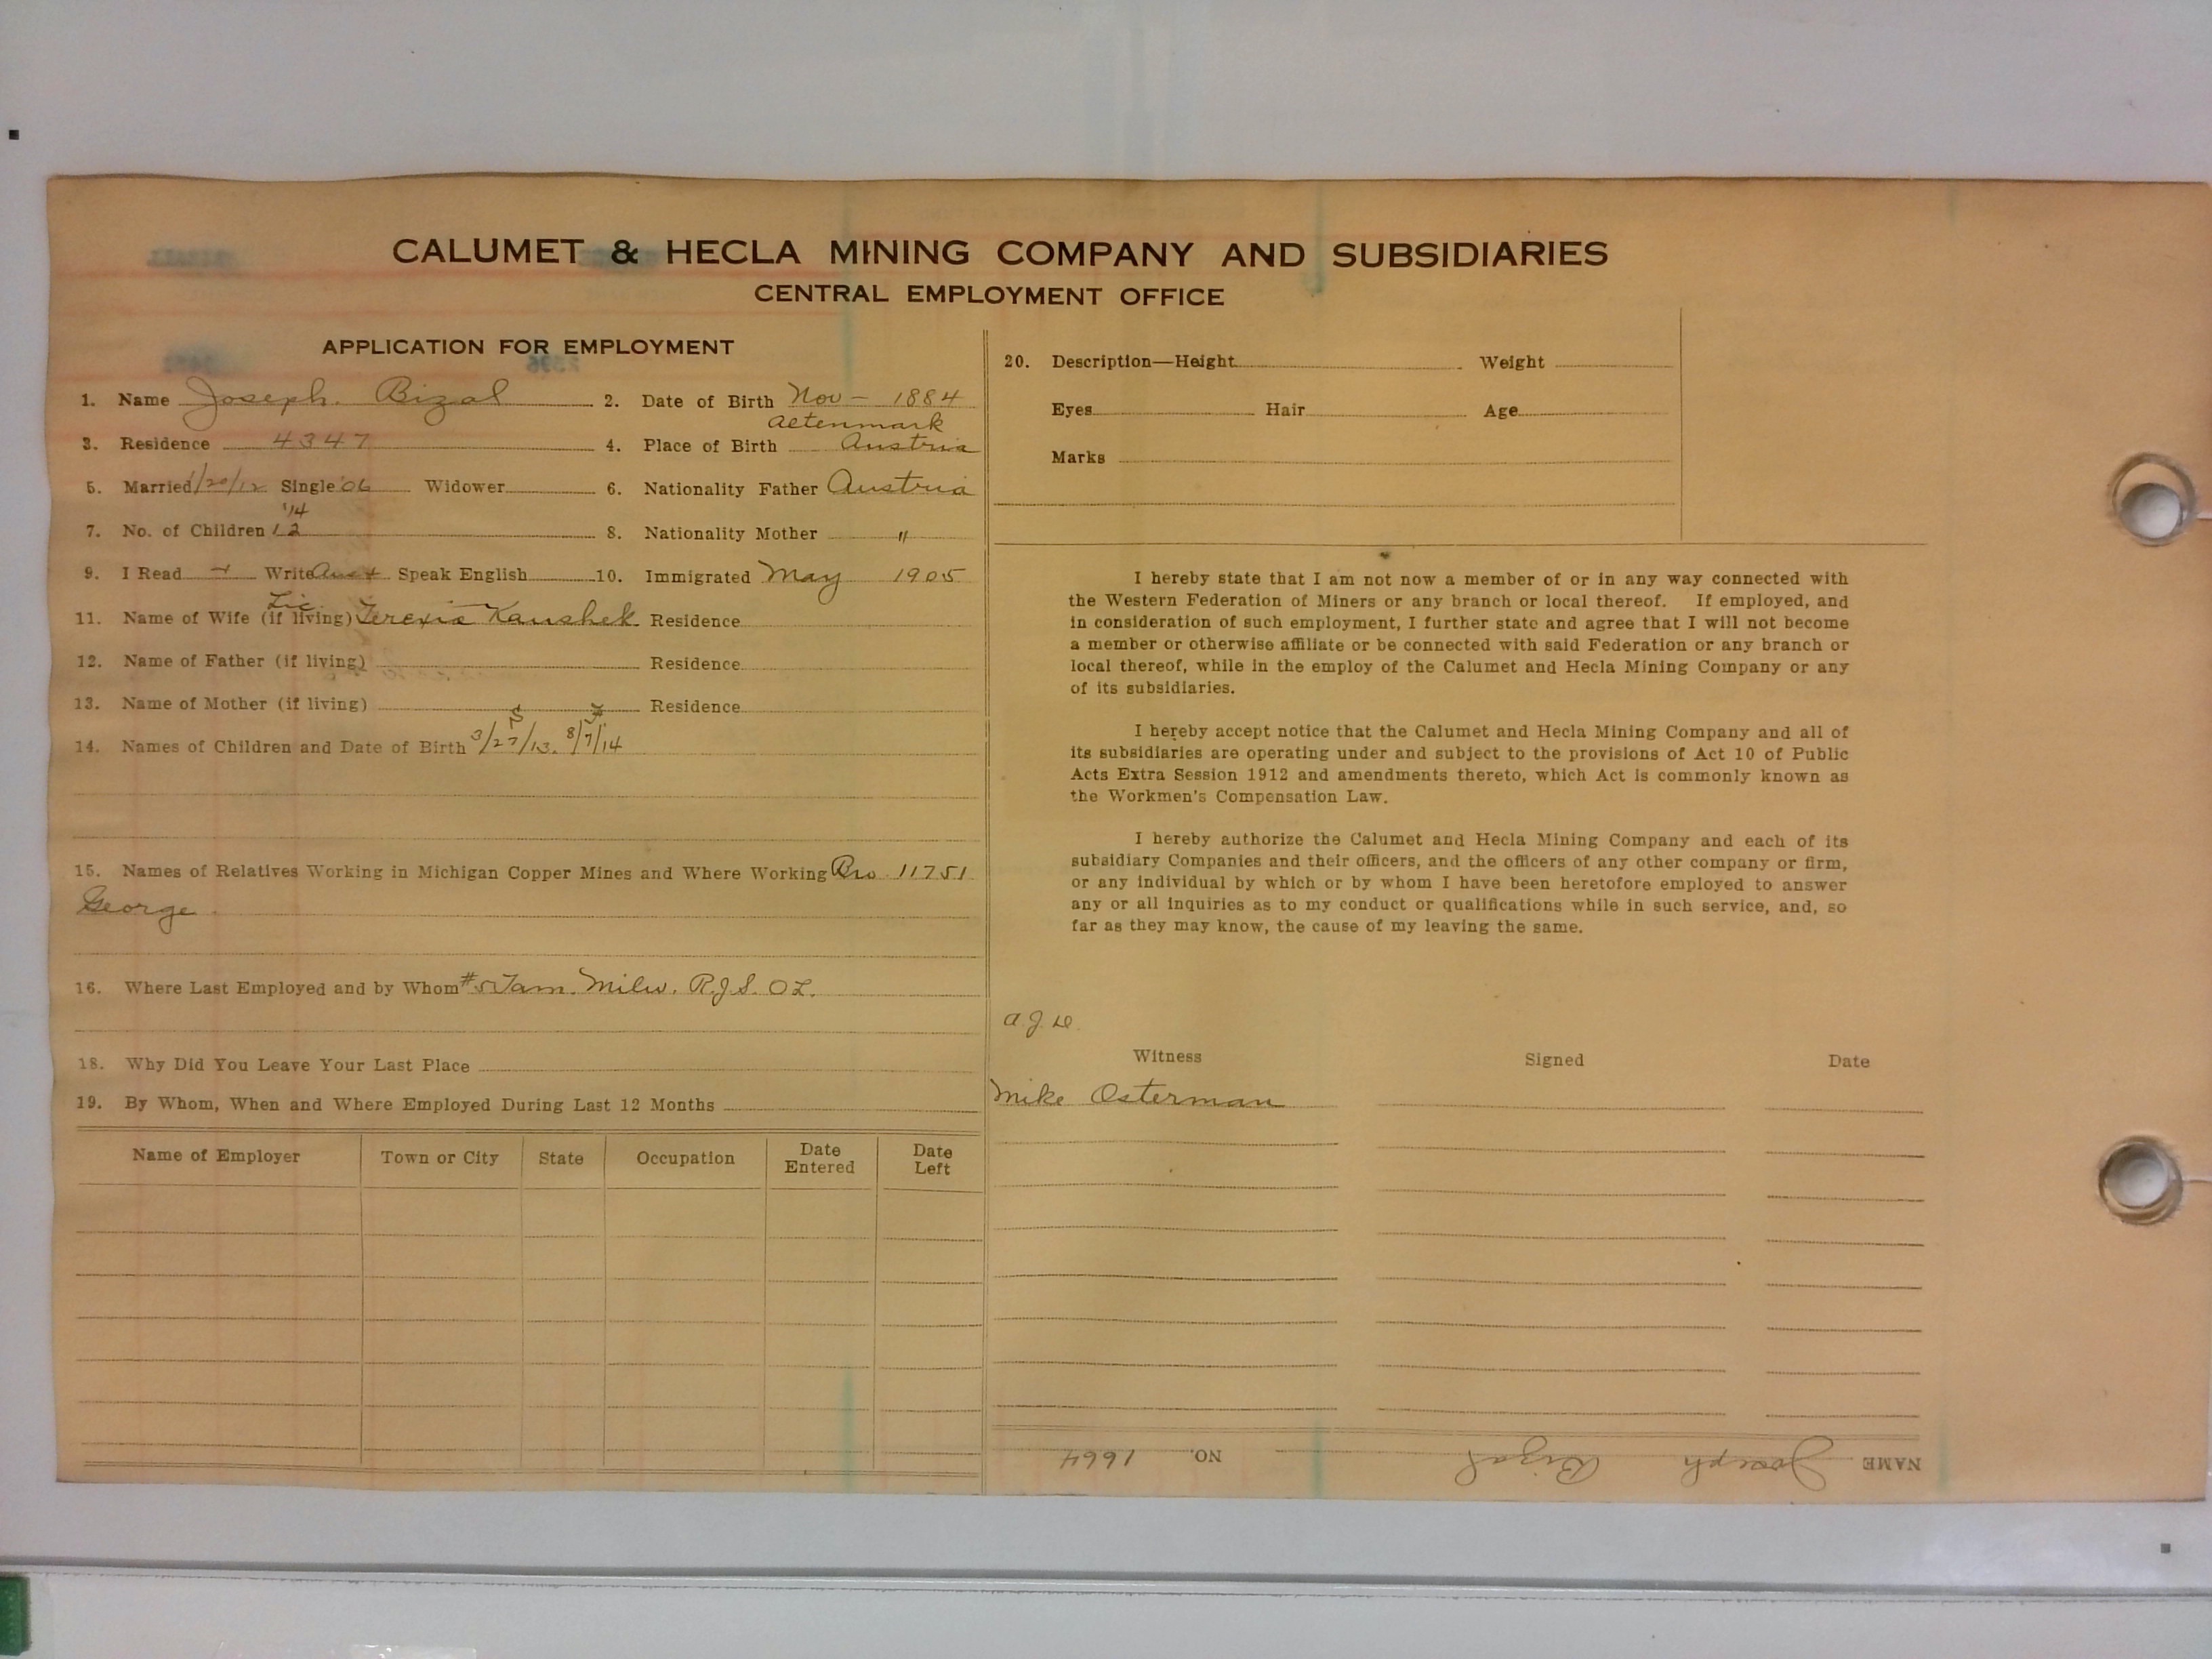 CALUMET & HECLA MINING COMPANY AND SUBSIDIARIES
CENTRAL EMPLOYMENT OFFICE
APPLICATION FOR EMPLOYMENT
1. Name Joseph. Bizal 2. Date of Birth Nov — 1884
Altenmark
3. Residence 4347 4. Place of Birth Austria
5. Married 1/20/12 Single '06 Widower 6. Nationality Father Austria
'14
7. No. of Children 1 2 8. Nationality Mother "
9. I Read + Write Aust Speak English 10. Immigrated May 1905
11. Name of Wife (if living) Kaushek Residence
12. Name of Father (if living) Residence
13. Name of Mother (if living) Residence
S
14. Names of Children and Date of Birth 3/27/13. 8/7/14
15. Names of Relatives Working in Michigan Copper Mines and Where Working Bro 11751
George.
16. Where Last Employed and by Whom #5 Tam. Milw. R.J.S. O L.
18. Why Did You Leave Your Last Place
19. By Whom, When and Where Employed During Last 12 Months
Name of Employer Town or City State Occupation Date Entered Date Left
20. Description—Height Weight
Eyes Hair Age
Marks
I hereby state that I am not now a member of or in any way connected with
the Western Federation of Miners or any branch or local thereof. If employed, and
in consideration of such employment, I further state and agree that I will not become
a member or otherwise affiliate or be connected with said Federation or any branch or
local thereof, while in the employ of the Calumet and Hecla Mining Company or any
of its subsidiaries.
I hereby accept notice that the Calumet and Hecla Mining Company and all of
its subsidiaries are operating under and subject to the provisions of Act 10 of Public
Acts Extra Session 1912 and amendments thereto, which Act is commonly known as
the Workmen's Compensation Law.
I hereby authorize the Calumet and Hecla Mining Company and each of its
subsidiary Companies and their officers, and the officers of any other company or firm,
or any individual by which or by whom I have been heretofore employed to answer
any or all inquiries as to my conduct or qualifications while in such service, and, so
far as they may know, the cause of my leaving the same.
Witness Signed Date
Mike Osterman
NAME Joseph Bizal NO. 1664